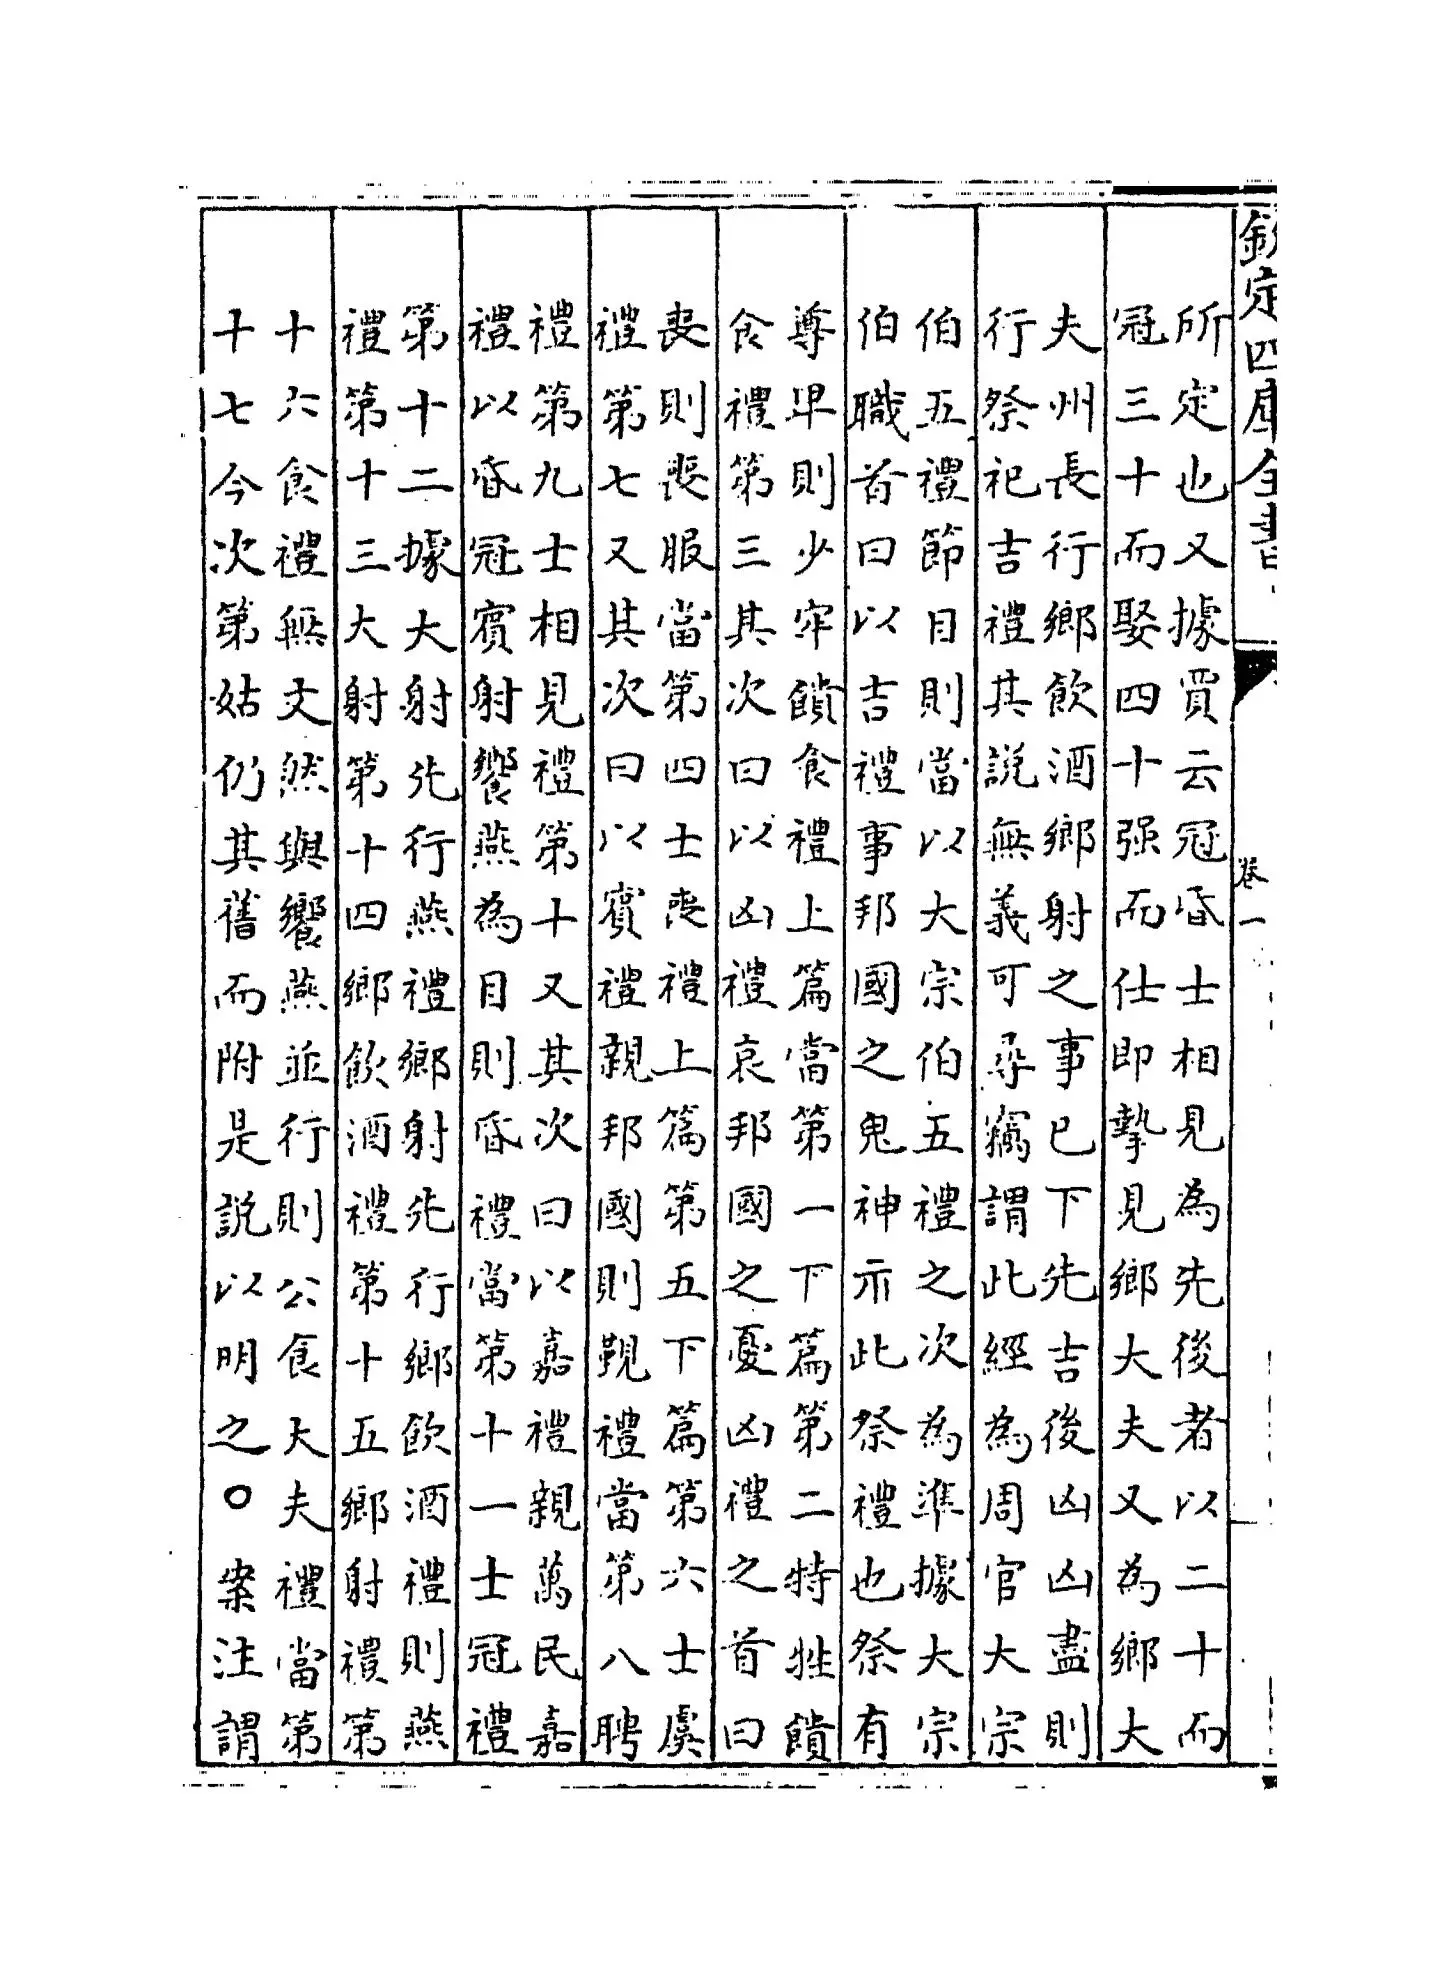 欽定四庫全書
卷一
所定也又據賈云冠昏士相見為先後者以二十而
冠三十而娶四十强而仕即摯見鄉大夫又為鄉大
夫州長行鄉飲酒鄉射之事已下先吉後凶凶盡則
行祭祀吉禮其說無義可尋竊謂此經為周官大宗
伯五禮節目則當以大宗伯五禮之次為準據大宗
伯職首曰以吉禮事邦國之鬼神示此祭禮也祭有
尊卑則少牢饋食禮上篇當第一下篇第二特牲饋
食禮第三其次曰以凶禮哀邦國之憂凶禮之首曰
喪則喪服當第四士喪禮上篇第五下篇第六士虞
禮第七又其次曰以賓禮親邦國則覲禮當第八聘
禮第九士相見禮第十又其次曰以嘉禮親萬民嘉
禮以昏冠賓射饗燕為目則昏禮當第十一士冠禮
第十二據大射先行燕禮鄉射先行鄉飲酒禮則燕
禮第十三大射第十四鄉飲酒禮第十五鄉射禮第
十六食禮無文然與饗燕並行則公食大夫禮當第
十七今次第姑仍其舊而附是說以明之○案注謂